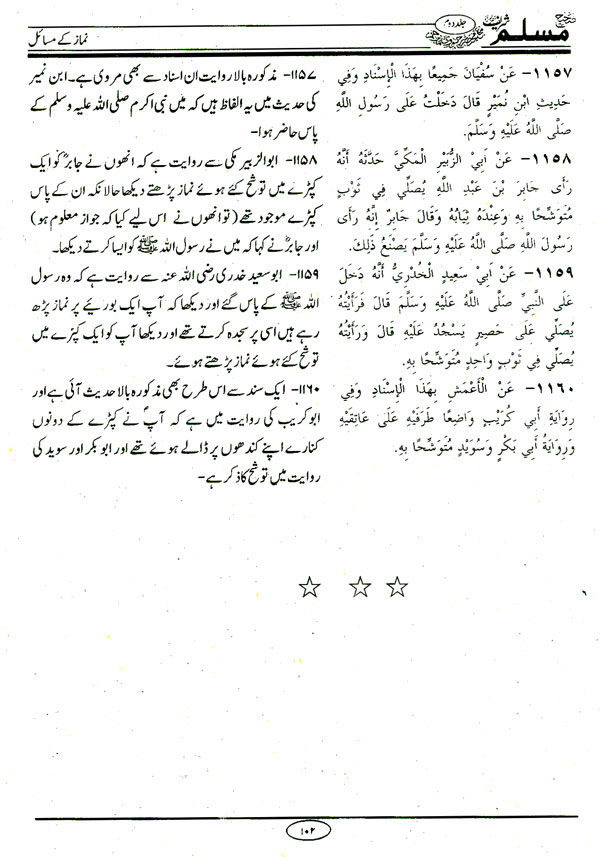 صحیح مسلم شریف
جلد دوم
نماز کے مسائل
١١٥٧- عَنْ سُفْيَانَ جَمِيعًا بِهَذَا الْإِسْنَادِ وَفِي
حَدِيثِ ابْنِ نُمَيْرٍ قَالَ دَخَلْتُ عَلَى رَسُولِ اللَّهِ
صَلَّى اللَّهُ عَلَيْهِ وَسَلَّمَ.
١١٥٨- عَنْ أَبِي الزُّبَيْرِ الْمَكِّيَّ حَدَّثَهُ أَنَّهُ
رَأَى جَابِرَ بْنَ عَبْدِ اللَّهِ يُصَلِّي فِي ثَوْبٍ
مُتَوَشِّحًا بِهِ وَعِنْدَهُ ثِيَابُهُ وَقَالَ جَابِرٌ إِنَّهُ رَأَى
رَسُولَ اللَّهِ صَلَّى اللَّهُ عَلَيْهِ وَسَلَّمَ يَصْنَعُ ذَلِكَ.
١١٥٩- عَنْ أَبِي سَعِيدٍ الْخُدْرِيُّ أَنَّهُ دَخَلَ
عَلَى النَّبِيِّ صَلَّى اللَّهُ عَلَيْهِ وَسَلَّمَ قَالَ فَرَأَيْتُهُ
يُصَلِّي عَلَى حَصِيرٍ يَسْجُدُ عَلَيْهِ قَالَ وَرَأَيْتُهُ
يُصَلِّي فِي ثَوْبٍ وَاحِدٍ مُتَوَشِّحًا بِهِ.
١١٦٠- عَنْ الْأَعْمَشِ بِهَذَا الْإِسْنَادِ وَفِي
رِوَايَةِ أَبِي كُرَيْبٍ وَاضِعًا طَرَفَيْهِ عَلَى عَاتِقَيْهِ
وَرِوَايَةُ أَبِي بَكْرٍ وَسُوَيْدٍ مُتَوَشِّحًا بِهِ.
۱۱۵۷- مذکورہ بالا روایت ان اسناد سے بھی مروی ہے۔ ابن نمیر
کی حدیث میں یہ الفاظ ہیں کہ میں نبی اکرم صلی اللہ علیہ وسلم کے
پاس حاضر ہوا-
۱۱۵۸- ابوالزبیر مکی سے روایت ہے کہ انھوں نے جابرؓ کو ایک
کپڑے میں توشح کئے ہوئے نماز پڑھتے دیکھا حالانکہ ان کے پاس
کپڑے موجود تھے (تو انھوں نے اس لیے کیا کہ جواز معلوم ہو)
اور جابرؓ نے کہا کہ میں نے رسول اللہ ﷺ کو ایسا کرتے دیکھا۔
۱۱۵۹- ابو سعید خدری رضی اللہ عنہ سے روایت ہے کہ وہ رسول
اللہ ﷺ کے پاس گئے اور دیکھا کہ آپ ایک بوریئے پر نماز پڑھ
رہے ہیں اسی پر سجدہ کرتے تھے اور دیکھا آپ کو ایک کپڑے میں
توشح کئے ہوئے نماز پڑھتے ہوئے۔
۱۱۶۰- ایک سند سے اس طرح بھی مذکورہ بالا حدیث آئی ہے اور
ابو کریب کی روایت میں ہے کہ آپؐ نے کپڑے کے دونوں
کنارے اپنے کندھوں پر ڈالے ہوئے تھے اور ابو بکر اور سوید کی
روایت میں توشح کا ذکر ہے-
۱۰۲